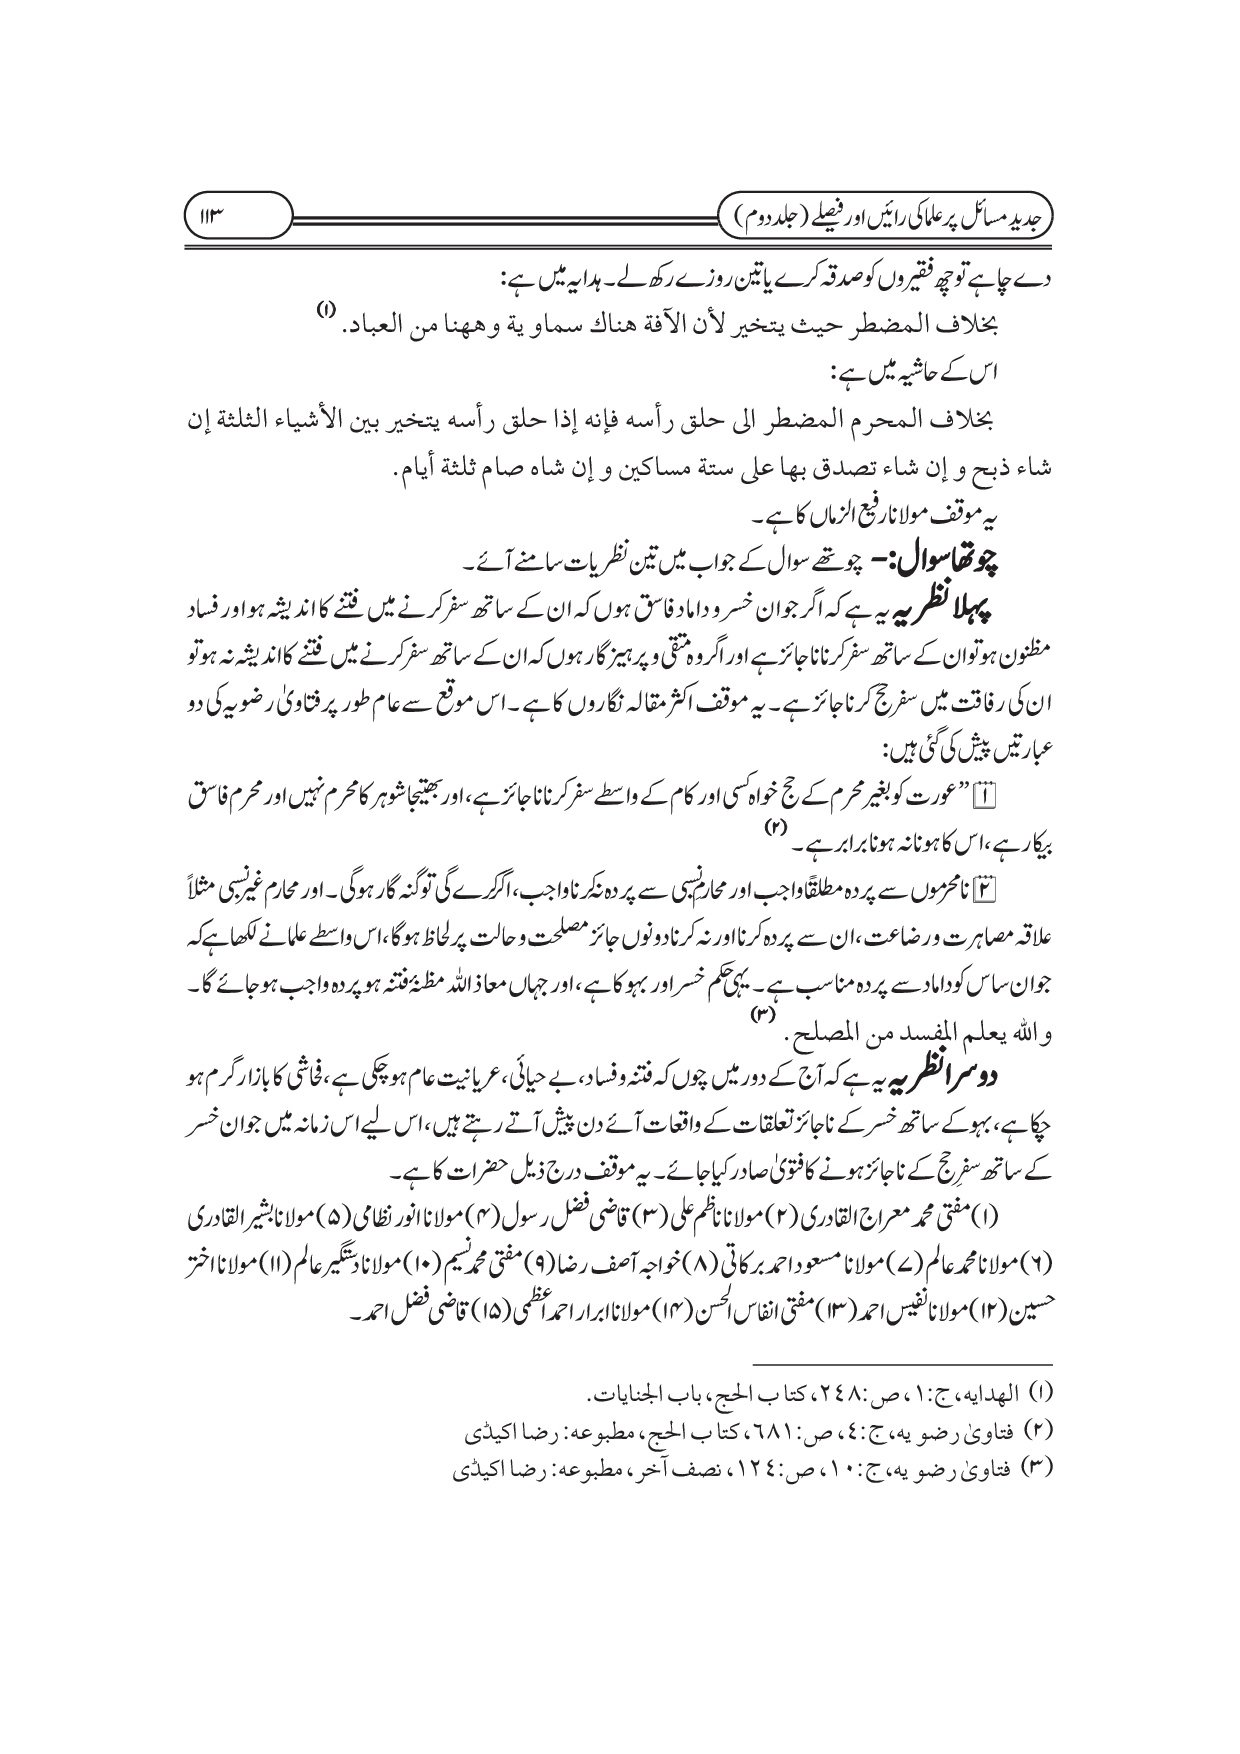 جدید مسائل پر علما کی رائیں اور فیصلے (جلد دوم)
۱۱۳
دے چاہے تو چھ فقیروں کو صدقہ کرے یا تین روزے رکھ لے۔ ہدایہ میں ہے:
بخلاف المضطر حيث يتخير لأن الآفة هناك سماوية وههنا من العباد. (۱)
اس کے حاشیہ میں ہے:
بخلاف المحرم المضطر الى حلق رأسه فإنه إذا حلق رأسه يتخير بين الأشياء الثلثة إن
شاء ذبح و إن شاء تصدق بها على ستة مساكين و إن شاه صام ثلثة أيام.
یہ موقف مولانا رفیع الزماں کا ہے۔
چوتھا سوال:– چوتھے سوال کے جواب میں تین نظریات سامنے آئے۔
پہلا نظریہ یہ ہے کہ اگر جوان خسر و داماد فاسق ہوں کہ ان کے ساتھ سفر کرنے میں فتنے کا اندیشہ ہو اور فساد
مظنون ہو تو ان کے ساتھ سفر کرنا ناجائز ہے اور اگر وہ متقی و پرہیز گار ہوں کہ ان کے ساتھ سفر کرنے میں فتنے کا اندیشہ نہ ہو تو
ان کی رفاقت میں سفر حج کرنا جائز ہے۔ یہ موقف اکثر مقالہ نگاروں کا ہے۔ اس موقع سے عام طور پر فتاویٰ رضویہ کی دو
عبارتیں پیش کی گئی ہیں:
۱ ”عورت کو بغیر محرم کے حج خواہ کسی اور کام کے واسطے سفر کرنا ناجائز ہے، اور بھتیجا شوہر کا محرم نہیں اور محرم فاسق
بیکار ہے، اس کا ہونا نہ ہونا برابر ہے۔ (۲)
۲ نامحرموں سے پردہ مطلقاً واجب اور محارم نسبی سے پردہ نہ کرنا واجب، اگر کرے گی تو گنہ گار ہوگی۔ اور محارم غیر نسبی مثلاً
علاقہ مصاہرت ورضاعت، ان سے پردہ کرنا اور نہ کرنا دونوں جائز مصلحت و حالت پر لحاظ ہوگا، اس واسطے علما نے لکھا ہے کہ
جوان ساس کو داماد سے پردہ مناسب ہے۔ یہی حکم خسر اور بہو کا ہے، اور جہاں معاذ اللہ مظنۂ فتنہ ہو پردہ واجب ہو جائے گا۔
والله يعلم المفسد من المصلح. (۳)
دوسرا نظریہ یہ ہے کہ آج کے دور میں چوں کہ فتنہ و فساد، بے حیائی، عریانیت عام ہو چکی ہے، فحاشی کا بازار گرم ہو
چکا ہے، بہو کے ساتھ خسر کے ناجائز تعلقات کے واقعات آئے دن پیش آتے رہتے ہیں، اس لیے اس زمانہ میں جوان خسر
کے ساتھ سفرِ حج کے ناجائز ہونے کا فتویٰ صادر کیا جائے۔ یہ موقف درج ذیل حضرات کا ہے۔
(۱) مفتی محمد معراج القادری (۲) مولانا ناظم علی (۳) قاضی فضل رسول (۴) مولانا انور نظامی (۵) مولانا بشیر القادری
(۶) مولانا محمد عالم (۷) مولانا مسعود احمد برکاتی (۸) خواجہ آصف رضا (۹) مفتی محمد نسیم (۱۰) مولانا دستگیر عالم (۱۱) مولانا اختر
حسین (۱۲) مولانا نفیس احمد (۱۳) مفتی انفاس الحسن (۱۴) مولانا ابرار احمد اعظمی (۱۵) قاضی فضل احمد۔
(۱) الهدايه، ج:١، ص:٢٤٨، كتاب الحج، باب الجنايات.
(۲) فتاویٰ رضويه، ج:٤، ص:٦٨١، كتاب الحج، مطبوعه: رضا اكيڈی
(۳) فتاویٰ رضويه، ج:١٠، ص:١٢٤، نصف آخر، مطبوعه: رضا اكيڈی